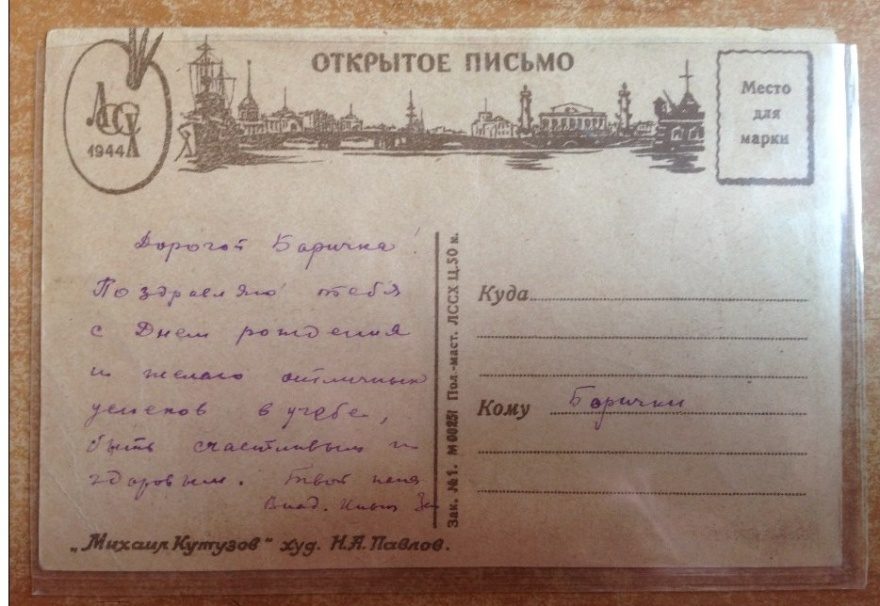 ОТКРЫТОЕ ПИСЬМО
ЛССХ
1944
Место
для
марки
Дорогой Баричка!
Поздравляю тебя
с Днем рождения
и желаю отличных
успехов в учебе,
быть счастливым и
здоровым. Твой папа
Влад.
"Михаил Кутузов" худ. Н.А. Павлов.
Зак. №1. М 00251 Пол.-маст. ЛССХ Ц.50 к.
Куда
Кому Барички